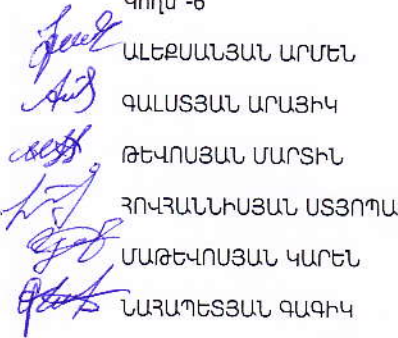 Կողմ -6
ԱԼԵՔՍԱՆՅԱՆ ԱՐՄԵՆ
ԳԱԼՍՏՅԱՆ ԱՐԱՅԻԿ
ԹԵՎՈՍՅԱՆ ՄԱՐՏԻՆ
ՀՈՎՀԱՆՆԻՍՅԱՆ ՍՏՅՈՊԱ
ՄԱԹԵՎՈՍՅԱՆ ԿԱՐԵՆ
ՆԱՀԱՊԵՏՅԱՆ ԳԱԳԻԿ